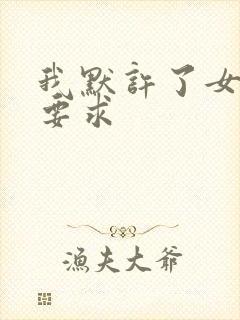 我默許了女
要求
漁夫大爺